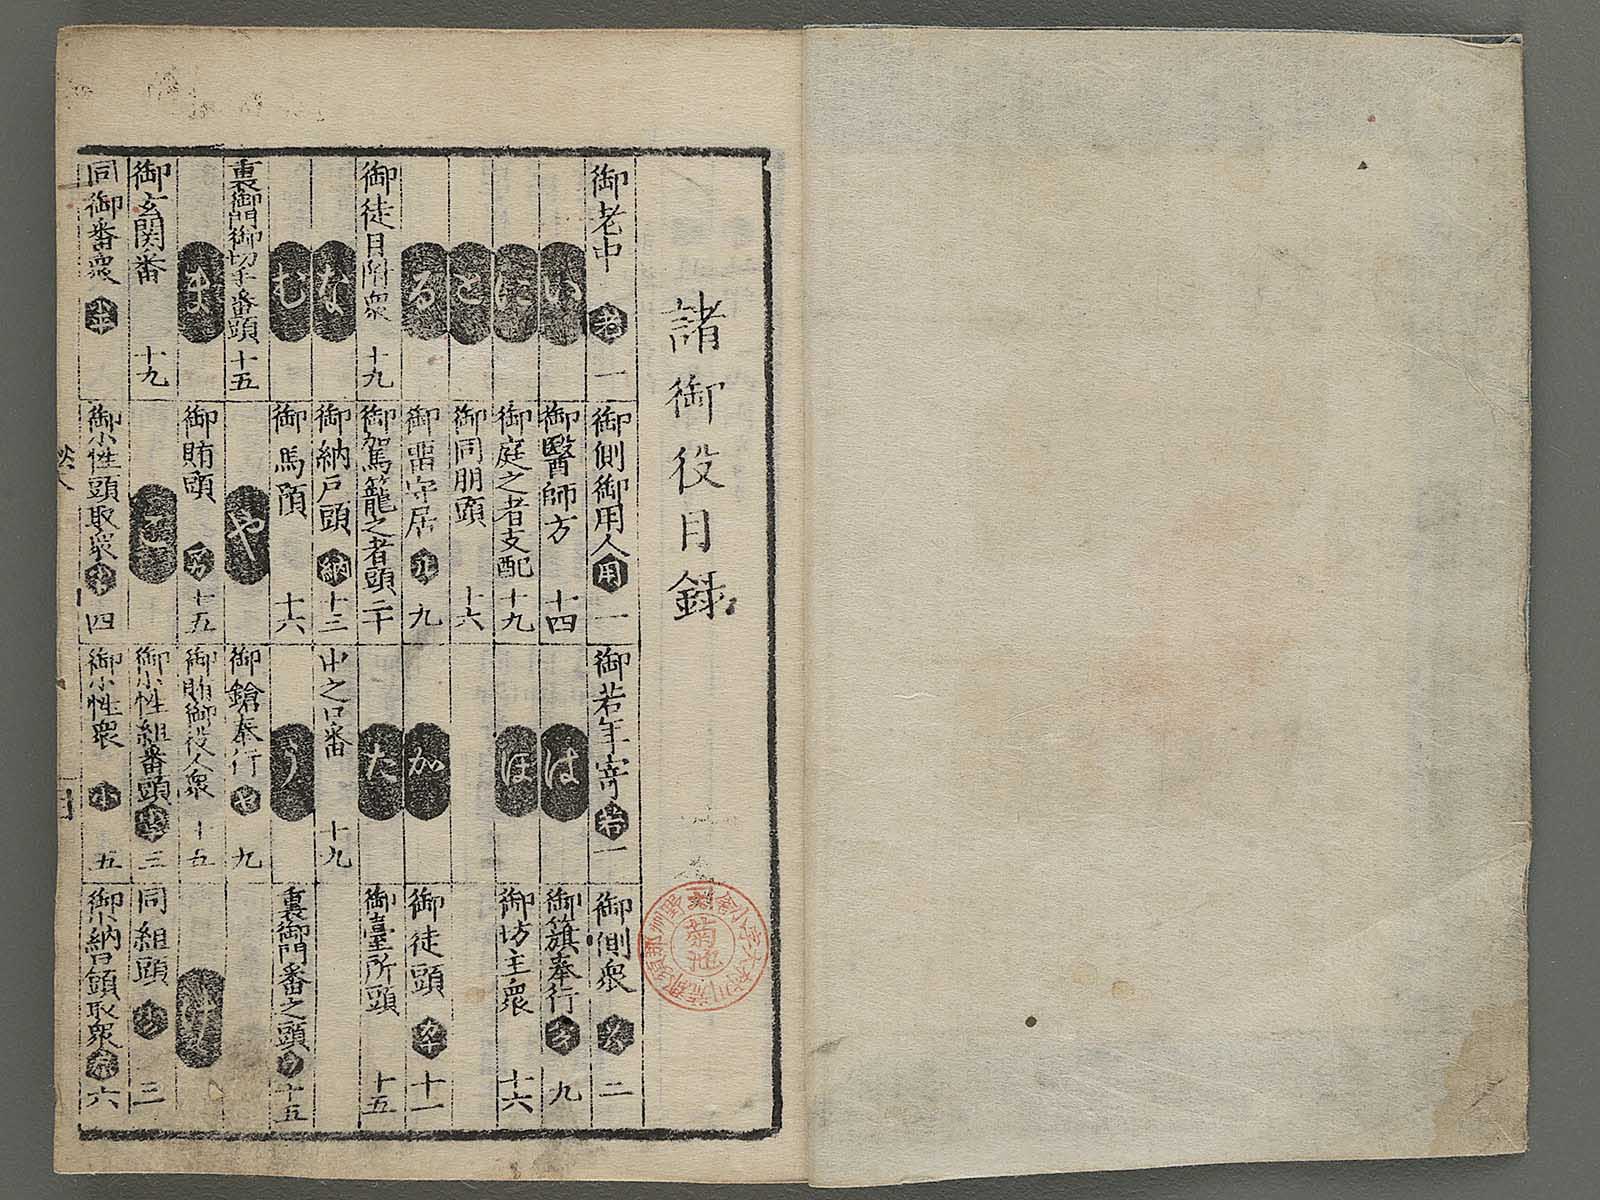 諸御役目録
御老中 老 一
御側御用人 用 一
御若年寄 若 一
御側衆 二
い
御醫師方 十四
は
御簱奉行 九
に
御庭之者支配 十九
ほ
御坊主衆 十六
と
御同朋頭 十六
る
御畱守居 ル 九
か
御徒頭 十一
御徒目附衆 十九
御駕籠之者頭 二十
た
御臺所頭 十五
な
御納戸頭 納 十三
中之口番 十九
む
御馬預 十六
う
裏御門番之頭 ウ 十五
裏御門御切手番頭 十五
や
御鎗奉行 ヤ 九
ま
御賄頭 十五
御賄御役人衆 十五
け
御玄関番 十九
こ
御小性組番頭 三
同組頭 三
同御番衆
御小性頭取衆 四
御小性衆 小 五
御小納戸頭取衆 六
菊池